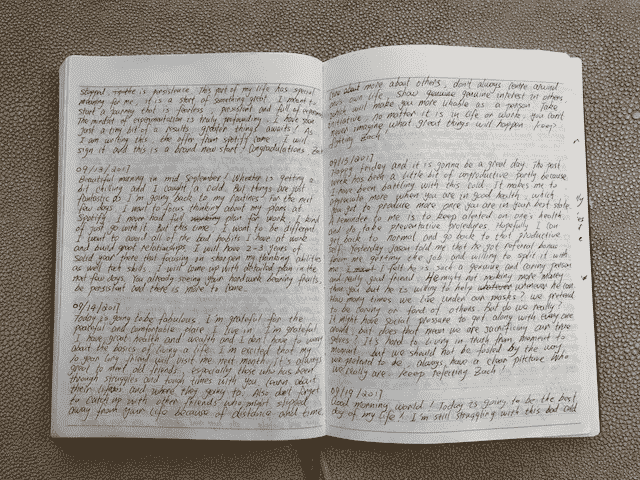 is persistence. This part of my life has special
meaning for me, it is a start of something great. I want to
start a journey that is fearless, persistent and full of
The moment of is truly profounding. I have seen
just a tiny bit of a results, greater things awaits! As
I am writing this, the offer from spotify came, I will
sign it and this is a brand new start! Congratulations
09/13/2017
Beautiful morning in mid September! Wheater is getting a
bit chilling and I caught a cold. But things are just
fantastic as I'm going back to my fastness for the next
few days. I want to focus thinking about my plans at
Spotify. I never had full working plan for work, I kind
of just go with it. But this time, I want to be different.
I want to avoid all of the bad habits I have at work
and build great relationships. I will have 2-3 years of
solid year there that focusing on sharpen my thinking abilities
as well tech skills. I will come up with detailed plan in the
next few days. You already seeing your hardwork bearing fruits,
be persistent and there is more to come.
09/14/2017
Today is going to be fabulous. I'm grateful for the
peaceful and comfortable place I live in. I'm grateful
I have great health and wealth and I don't have to worry
about the basics of living a life. I'm excited that my
10 year long friend will visit me next month. It's always
great to meet old friends, especially those who has been
through struggles and tough times with you. Learn about
their lifes and where they going to. Also don't forget
to catch up with other friends who might slipped
away from your life because of distance and time.
care about more about others, don't always centre around
your own life. Show genuine genuine interest in others
which will make you more likable as a person. Take
initiative, no matter it is in life or work. You can't
ever imaging what great things will happen from
09/15/2017
Happy friday and it is gonna be a great day. The past
week has been a little bit of unproductive partly because
I have been battling with this cold. It makes me to
appreciate more when you are in good health, which
you got to produce more once you are in your best state.
A reminder to me is to keep alerted on one's health
and to take preventative procedures. Hopefully I can
get back to normal and go back to that productive
self. Yesterday Jason told me that he got referral bonus
from me getting the job and willing to split it with
me. I felt he is such a genuine and caring person
and really good friend. He might not making more money
than you but he is willing to help whenever he can.
How many times we live under our masks? We pretend
to be caring on fond of others. But do we really?
It might have social pressure to get along with they are
around, but does that mean we are sacrificing our true
selves? It's hard to living in truth from moment to
moment, but we should not be fooled by the way
we pretend to be. Always have a clear picture who
we really are. Keep reflecting Rui!
09/19/2017
Good morning world! Today is going to be the best
day of my life! I'm still struggling with this bad cold